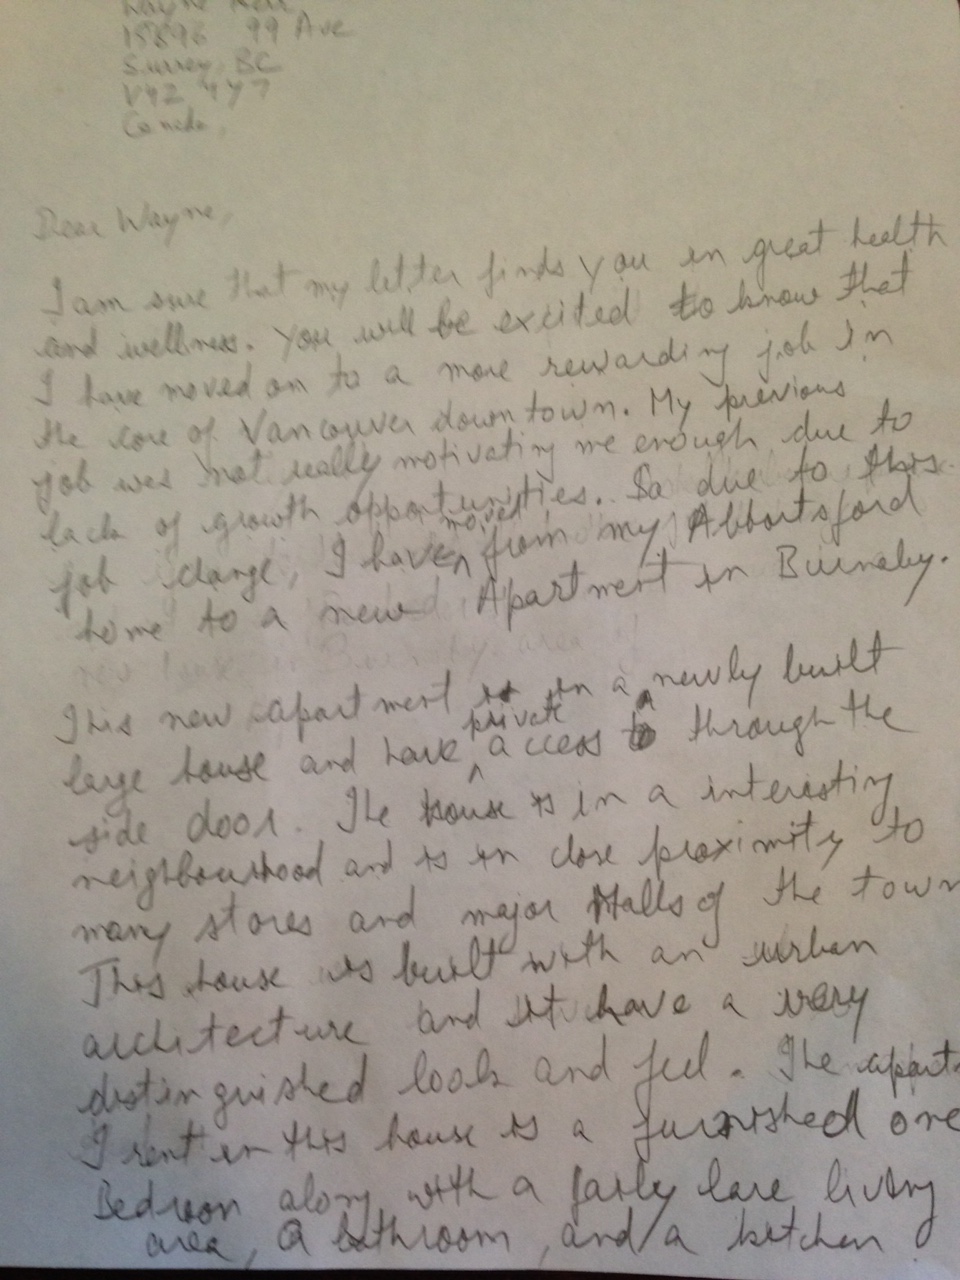 Wayne
15896 99 Ave
Surrey, BC
V4Z 4Y7
Canada,
Dear Wayne,
I am sure that my letter finds you in great health
and wellness. You will be excited to know that
I have moved on to a more rewarding job in
the core of Vancouver downtown. My previous
job was not really motivating me enough due to
lack of growth opportunities. So due to this
job change, I have moved from my Abbortsford
home to a new Apartment in Burnaby.
This new apartment is in a newly built
large house and have private access through the
side door. The house is in a interesting
neighbourhood and is in close proximity to
many stores and major Malls of the town
This house is built with an urban
architecture and it have a very
distinguished look and feel. The apart
I rent in this house is a furnished one
Bedroon along with a farly lare living
area, a bathroom, and a kitchen.